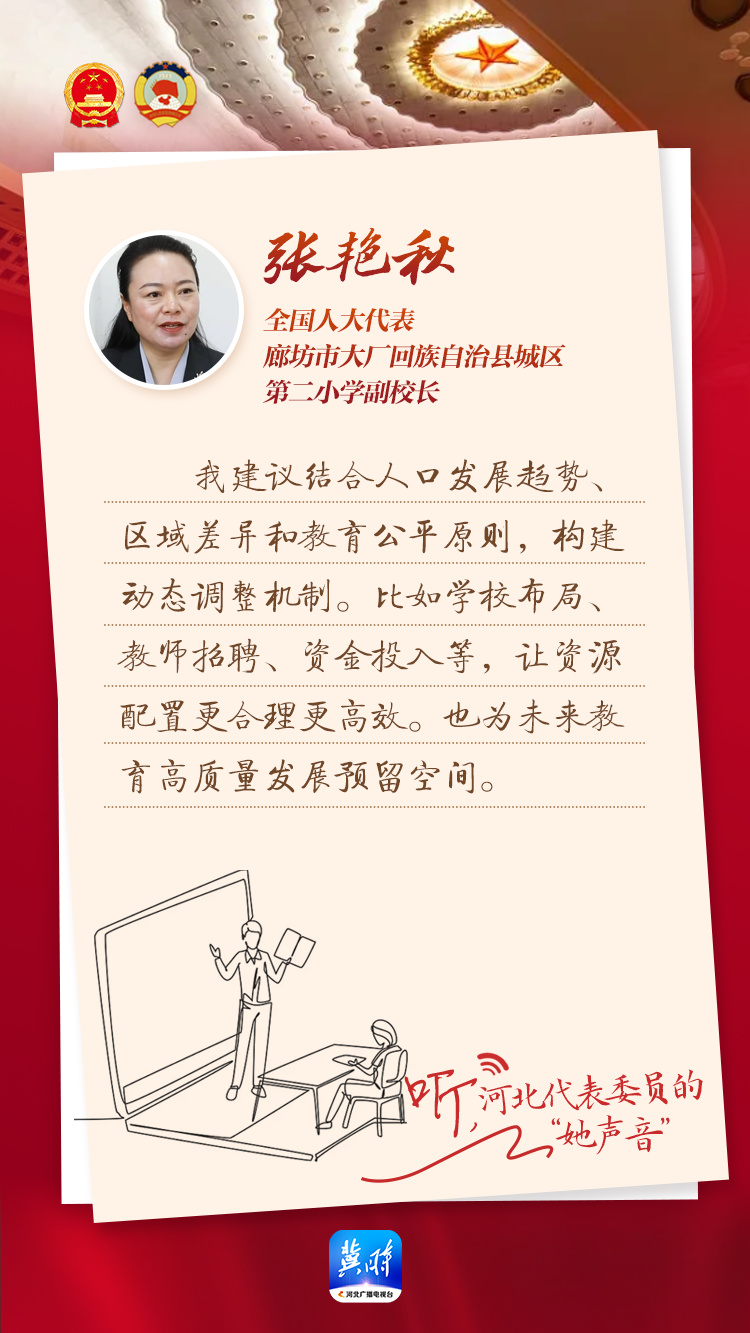 张艳秋
全国人大代表
廊坊市大厂回族自治县城区
第二小学副校长
我建议结合人口发展趋势、
区域差异和教育公平原则，构建
动态调整机制。比如学校布局、
教师招聘、资金投入等，让资源
配置更合理更高效。也为未来教
育高质量发展预留空间。
听，河北代表委员的
“她声音”
冀时
河北广播电视台